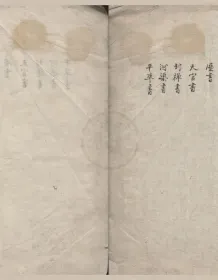 曆書
天官書
封禪書
河渠書
平準書